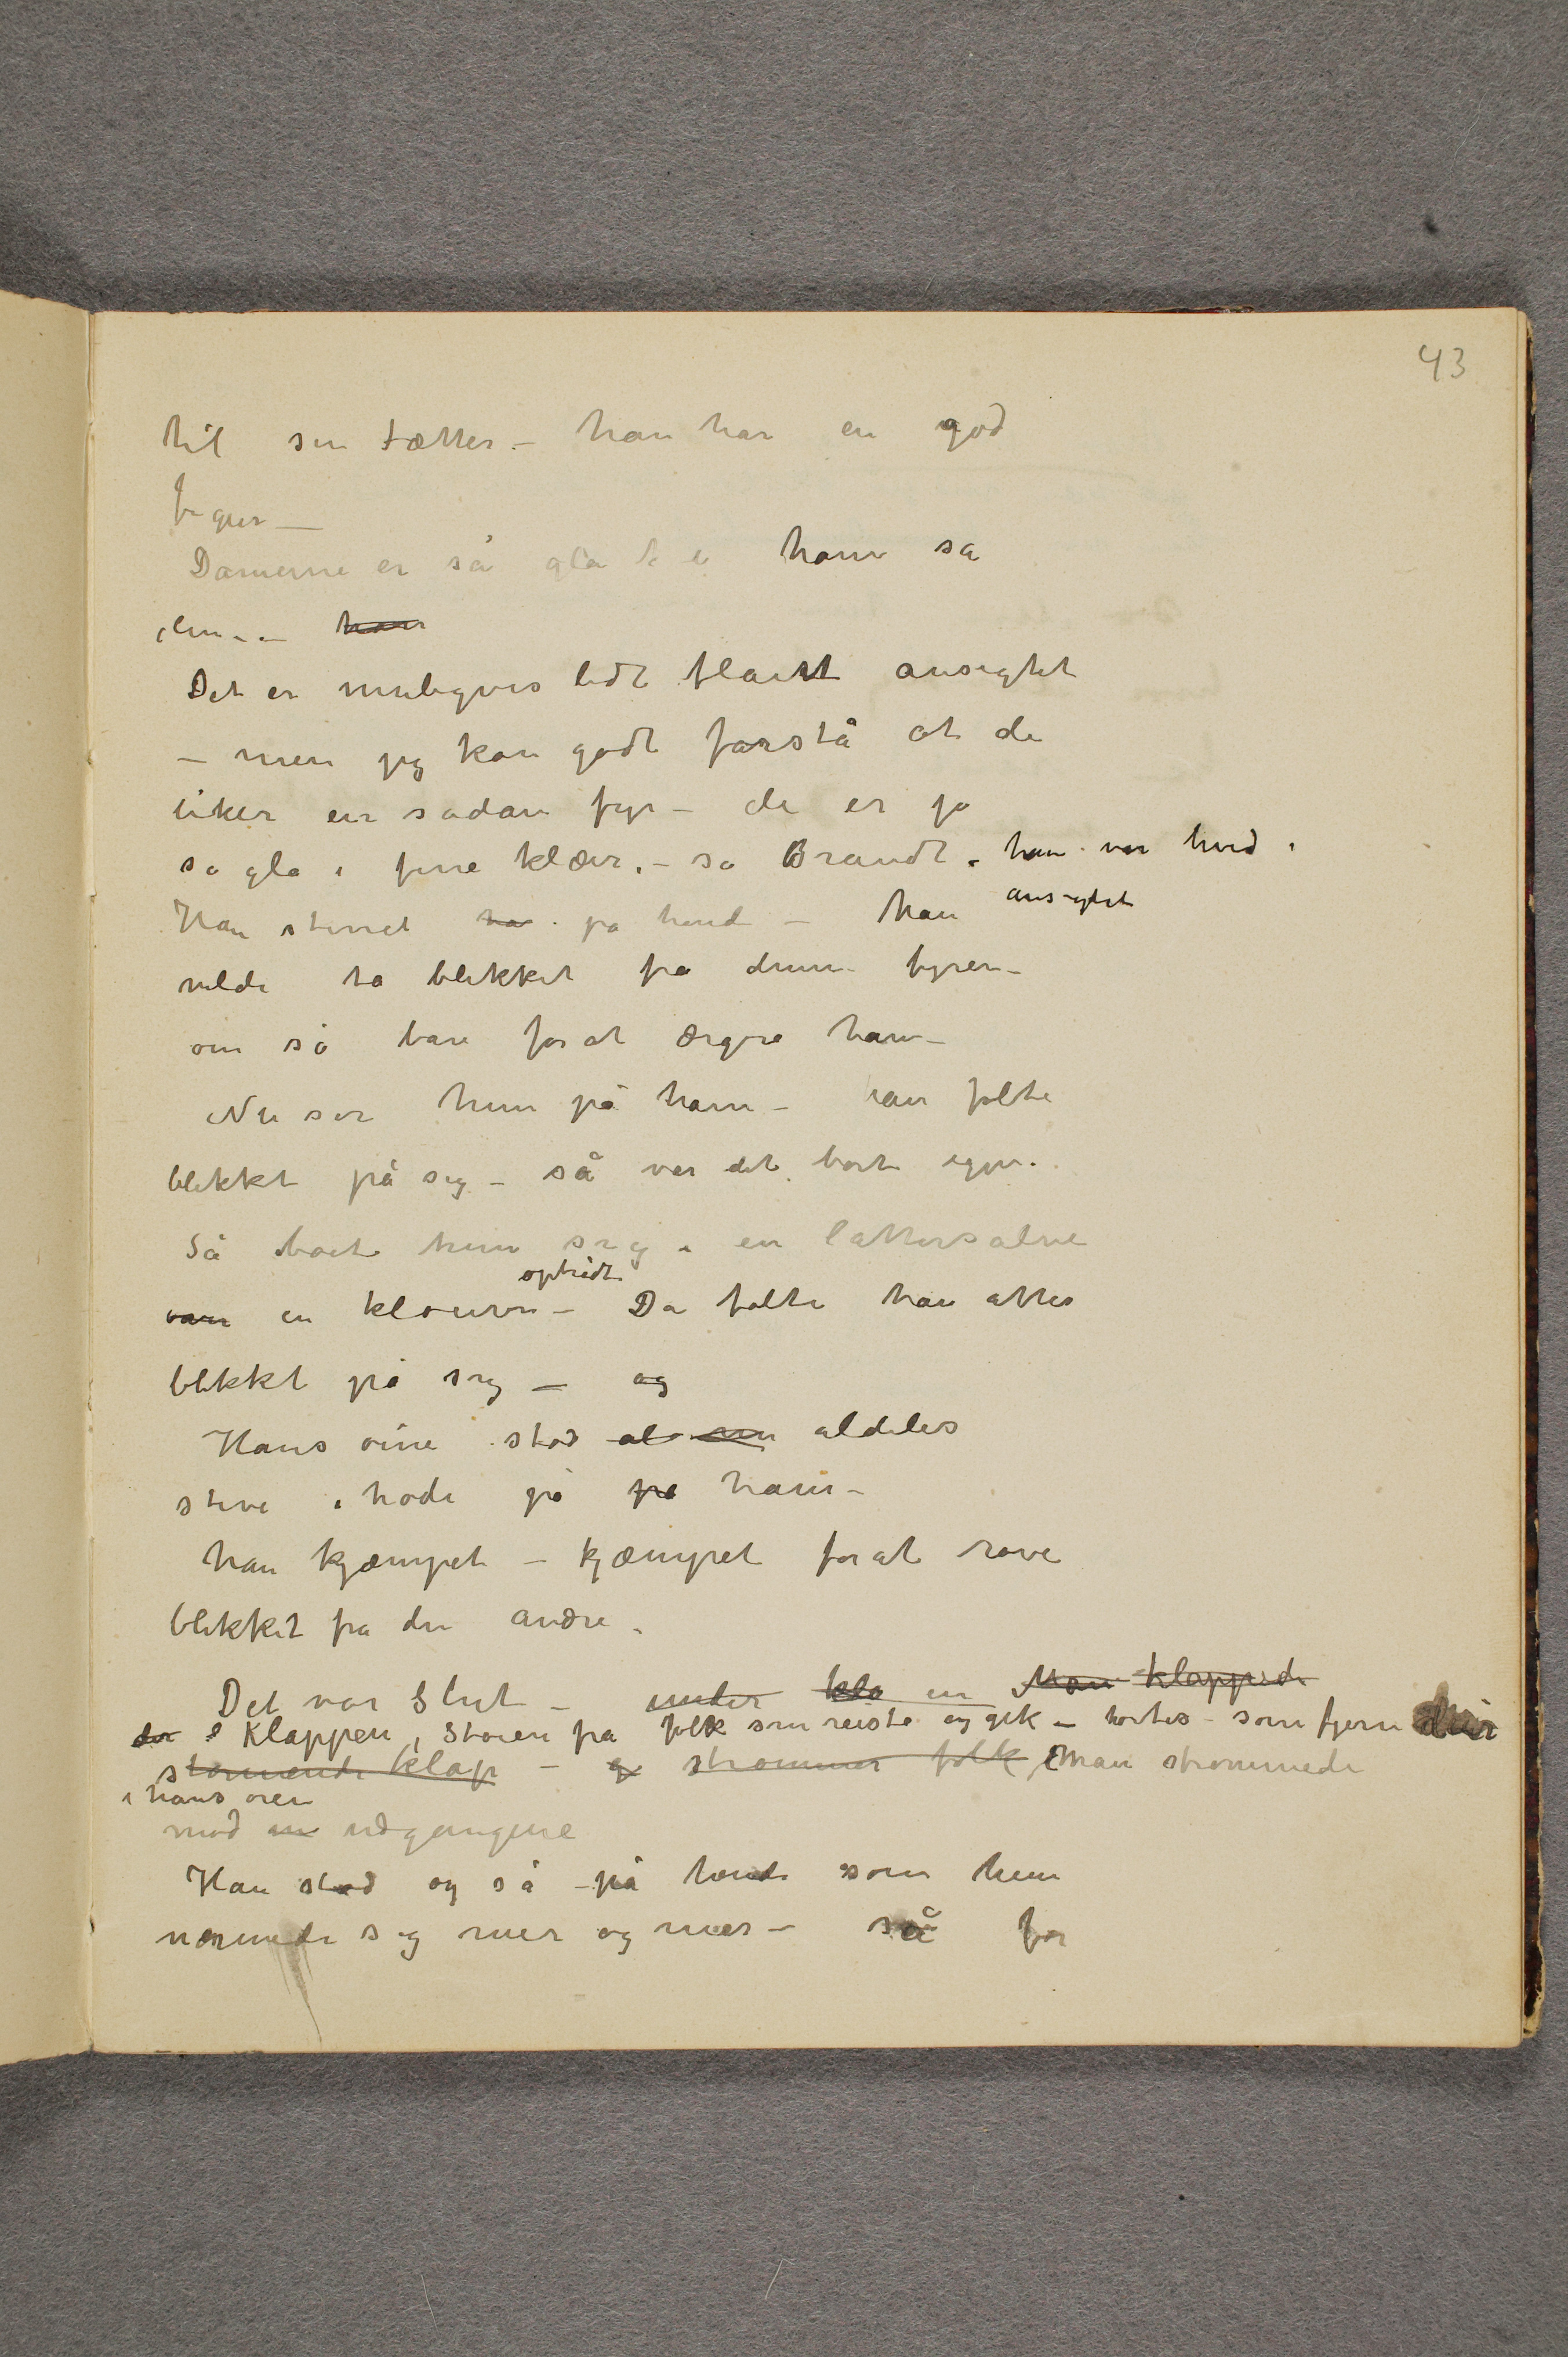 43
til sin fætter – han har en god
figur —
Damerne er så gla i ham sa
Det er muligvis lidt flaut ansigtet
– men jeg kan godt forstå at de
liker en sådan fyr – de er jo
så gla i fine klær. – sa Brandt. han var hvid i
ansigtet
Han stirret ha på hende – han
vilde ta blikket fra denne fyren –
om så bare for at ærgre ham –
Nu ser hun på ham – han følte
blikket på sig – så var det borte igjen.
Så brast hun sig i en lattersalve
optrådte
var en klouvn – Da følte han atter
blikket på sig — og
Hans øine stod al aldeles
stive i hode på på ham –
han kjæmpet – kjæmpet for at røve
blikket fra den andre.
Det var Slut – under kla en Man klappede
der Klappen, støien fra folk som reiste og gik – hørtes som fjern dur
stormende klap – og strømmer folk Man strømmede
i hans ører
mod udgangene
Han stod og så på hende som hun
nærmede sig mer og mer – så for